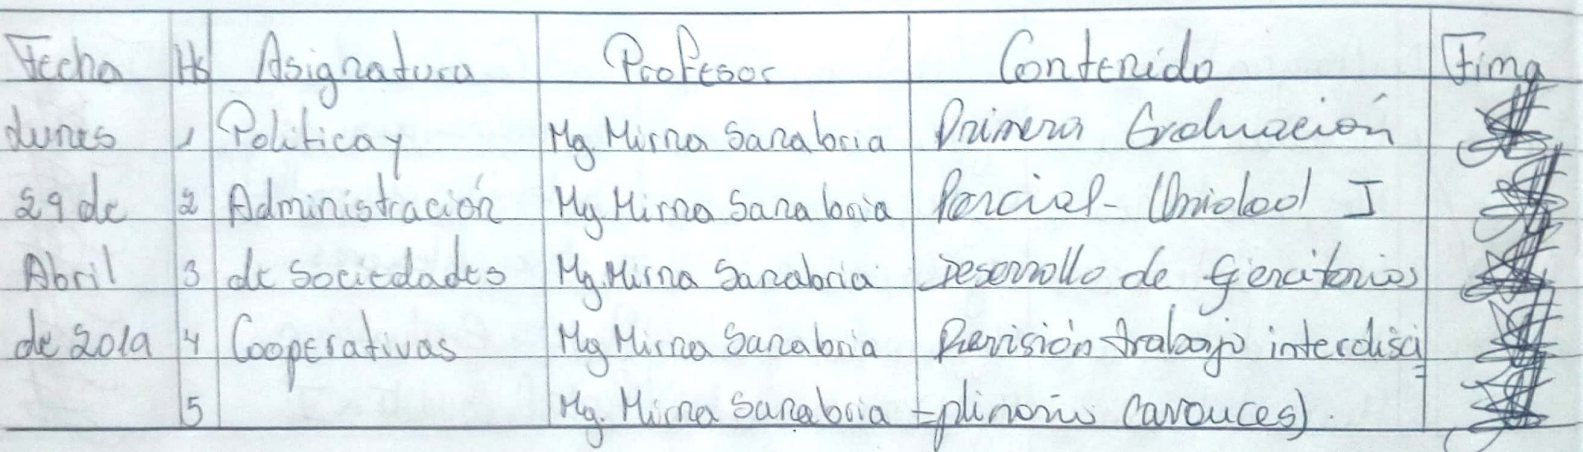 Fecha Hs Asignatura Profesor Contenido Fima
Lunes 1 Politica y Mg. Mirna Sanabria Primera Evaluación
29 de 2 Administración Mg. Mirna Sanabria Parcial - Unidad I
Abril 3 de Sociedades Mg. Mirna Sanabria Desarrollo de Ejercitorios
de 2019 4 Cooperativas Mg Mirna Sanabria Revisión trabajo interdisci=
5 Mg. Mirna Sanabria =plinario (avances).